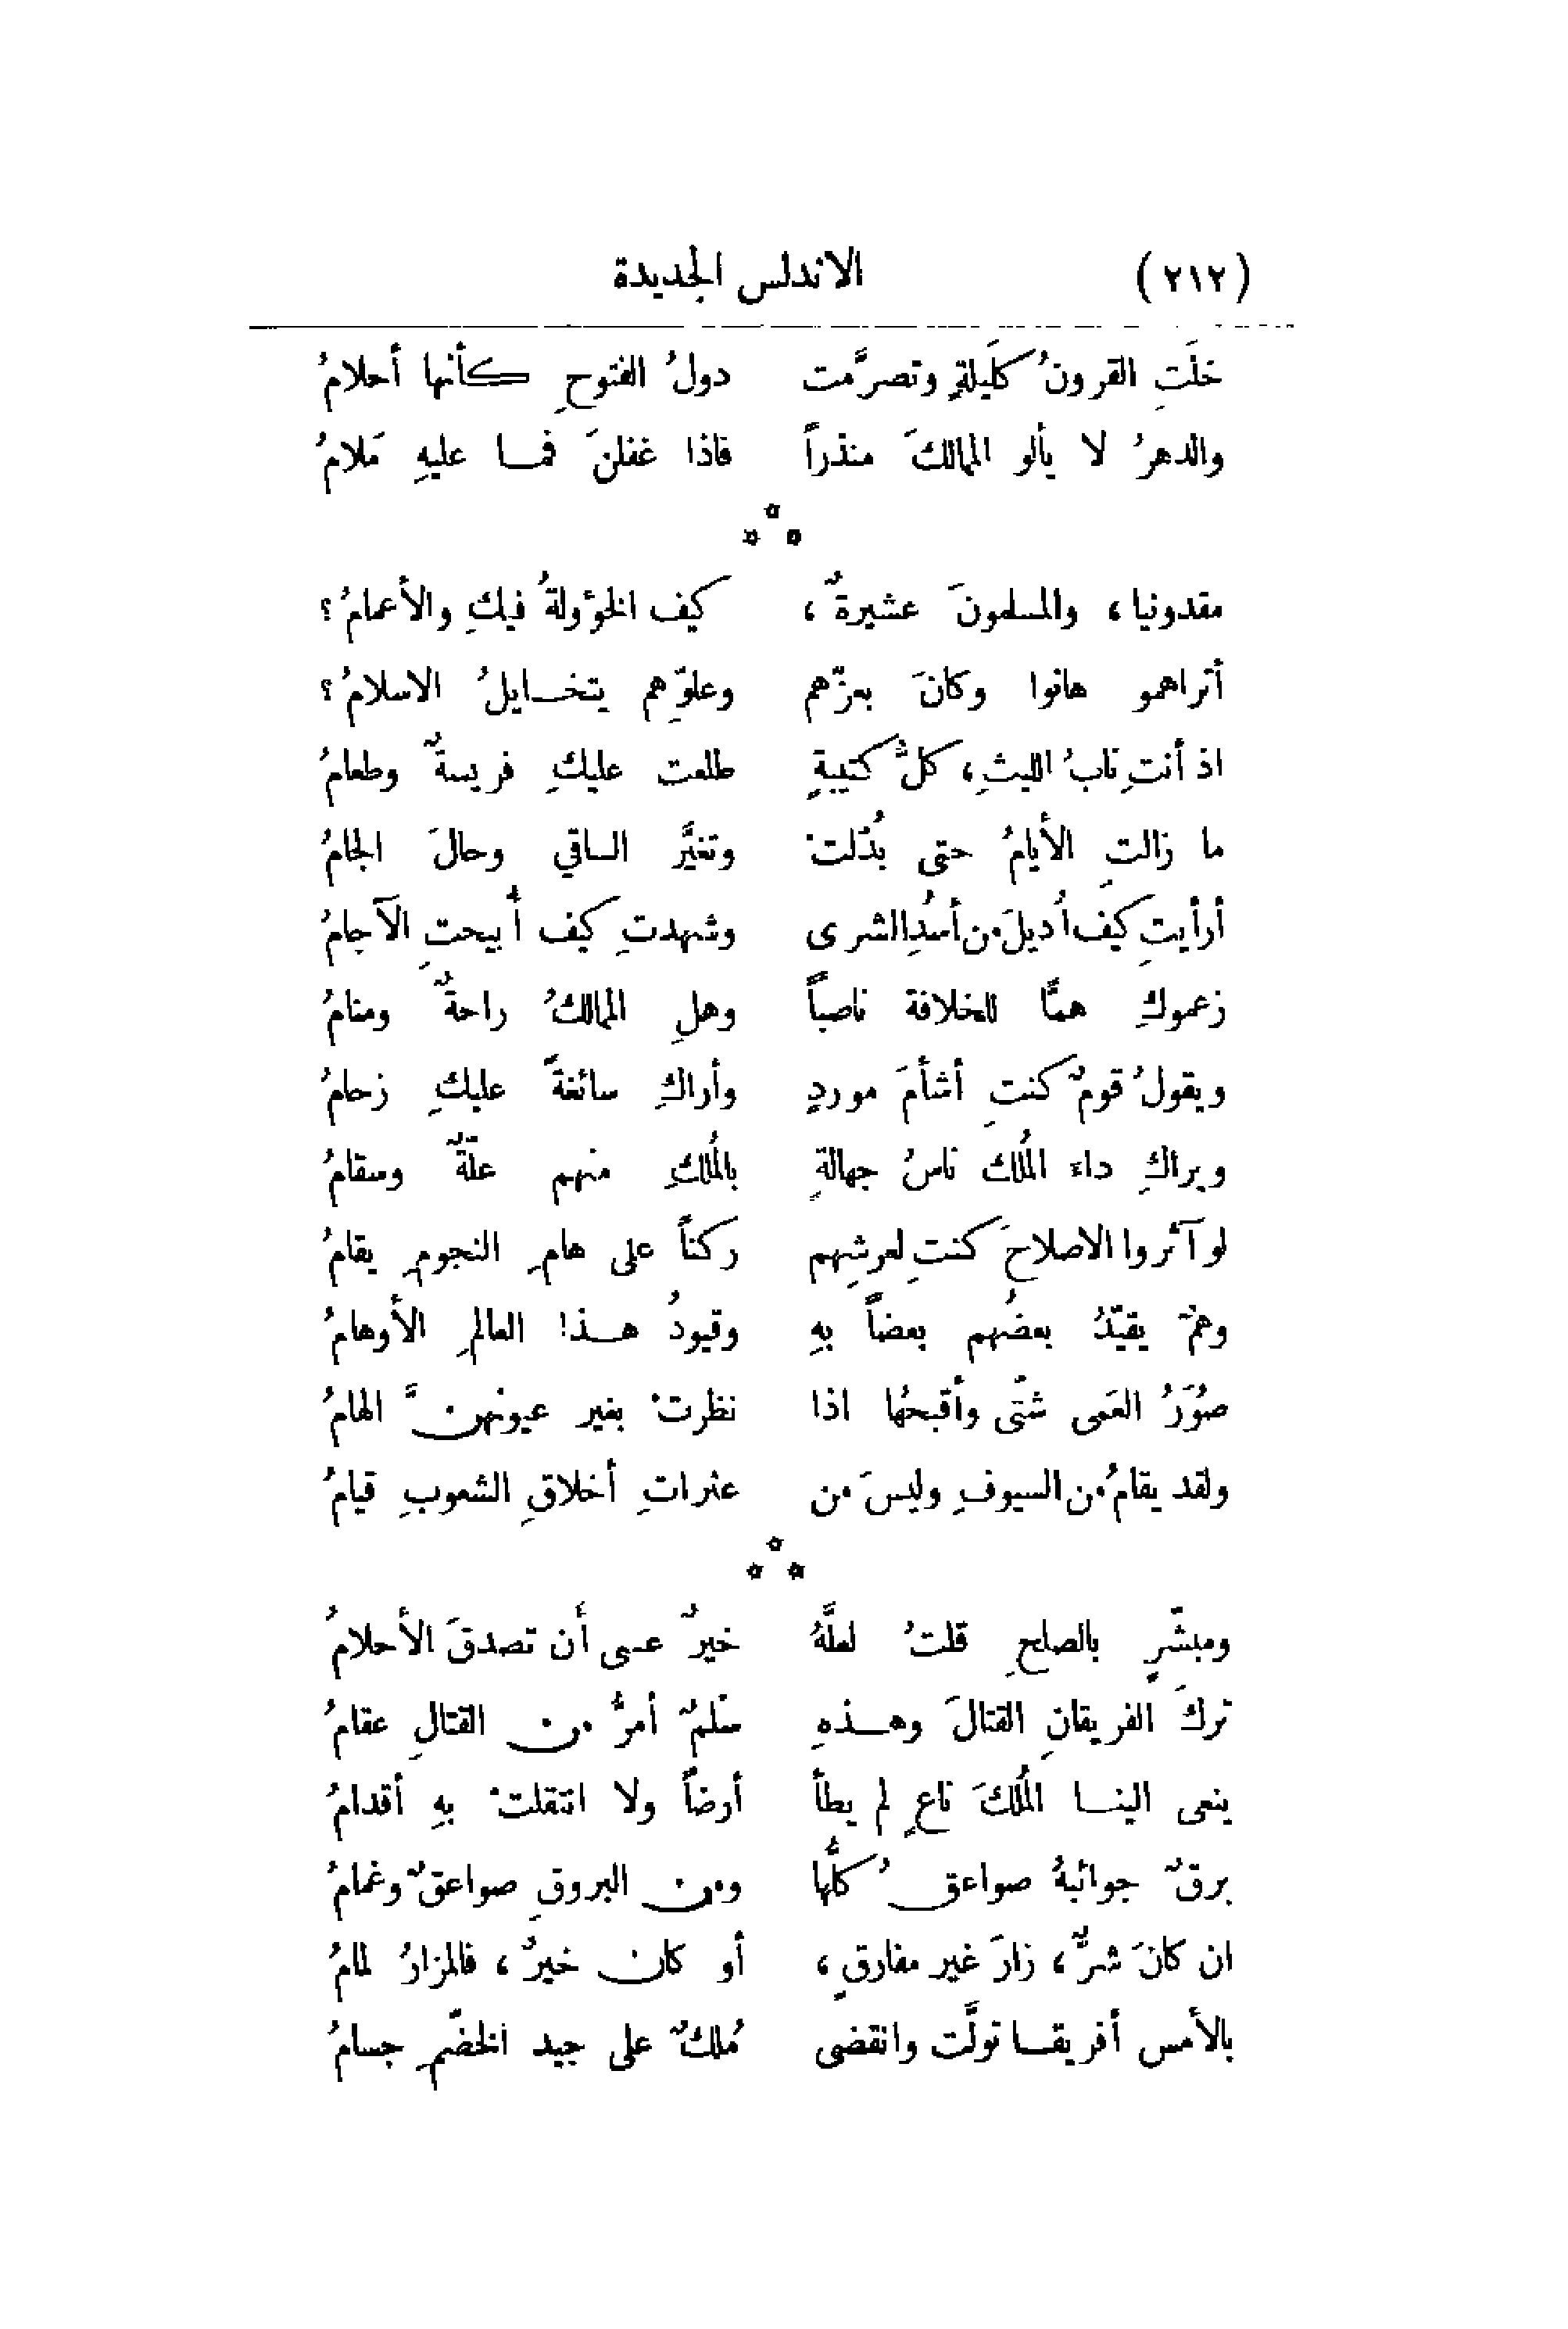 (٢١٢) الاندلس الجديدة
خلَتِ القرونُ كلَيلةٍ وتصرَّمت دولُ الفتوحِ كأنها أحلامُ
والدهرُ لا يألو الممالكَ منذراً فاذا غفلنَ فمـا عليهِ مَلامُ
* * *
مقدونيا ، والمسلمونَ عشيرةٌ ، كيف الخؤولةُ فيكِ والأعمامُ ؟
أتراهمو هانوا وكانَ بعزّهم وعلوّهِم يتخـايلُ الاسلامُ ؟
اذ أنتِ نابُ الليثِ ، كلُّ كتيبةٍ طلعت عليكِ فريسةٌ وطعامُ
ما زالتِ الأيامُ حتى بُدّلتْ وتغيَّر الساقي وحالَ الجامُ
أرأيتِ كيف اُديلَ من أسُدِ الشرى وشهدتِ كيف اُبيحتِ الآجامُ
زعموكِ همًّا للخلافة ناصباً وهلِ الممالكُ راحةٌ ومنامُ
ويقولُ قومٌ كنتِ أشأمَ موردٍ وأراكِ سائغةً عليكِ زحامُ
ويراكِ داءَ المُلك ناسُ جهالةٍ بالمُلكِ منهم علّةٌ وسقامُ
لو آثروا الاصلاحَ كنتِ لعرشِهم ركناً على هامِ النجومِ يقامُ
وهمٌ يقيّدُ بعضُهم بعضاً بهِ وقيودُ هـذا العالمِ الأوهامُ
صُوَرُ العَمى شتّى وأقبحُها اذا نظرتْ بغير عيونهنَّ الهامُ
ولقد يقامُ من السيوفِ وليسَ من عثراتِ أخلاقِ الشعوبِ قيامُ
* * *
ومبشّرٍ بالصلحِ قلتُ لعلَّهُ خيرٌ عسى أن تصدقَ الأحلامُ
تركَ الفريقانِ القتالَ وهـذهِ سَلمٌ أمرُّ من القتالِ عقامُ
ينعى الينـا المُلكَ ناعٍ لم يطأ أرضاً ولا انتقلتْ بهِ أقدامُ
برقٌ جوائبهُ صواعقُ كلُّها ومن البروقِ صواعقٌ وغمامُ
ان كانَ شرٌّ ، زارَ غير مفارقٍ ، أو كان خيرٌ ، فالمزارُ لمامُ
بالأمس أفريقـا تولَّت وانقضى مُلكٌ على جيد الخضّمِ جسامُ